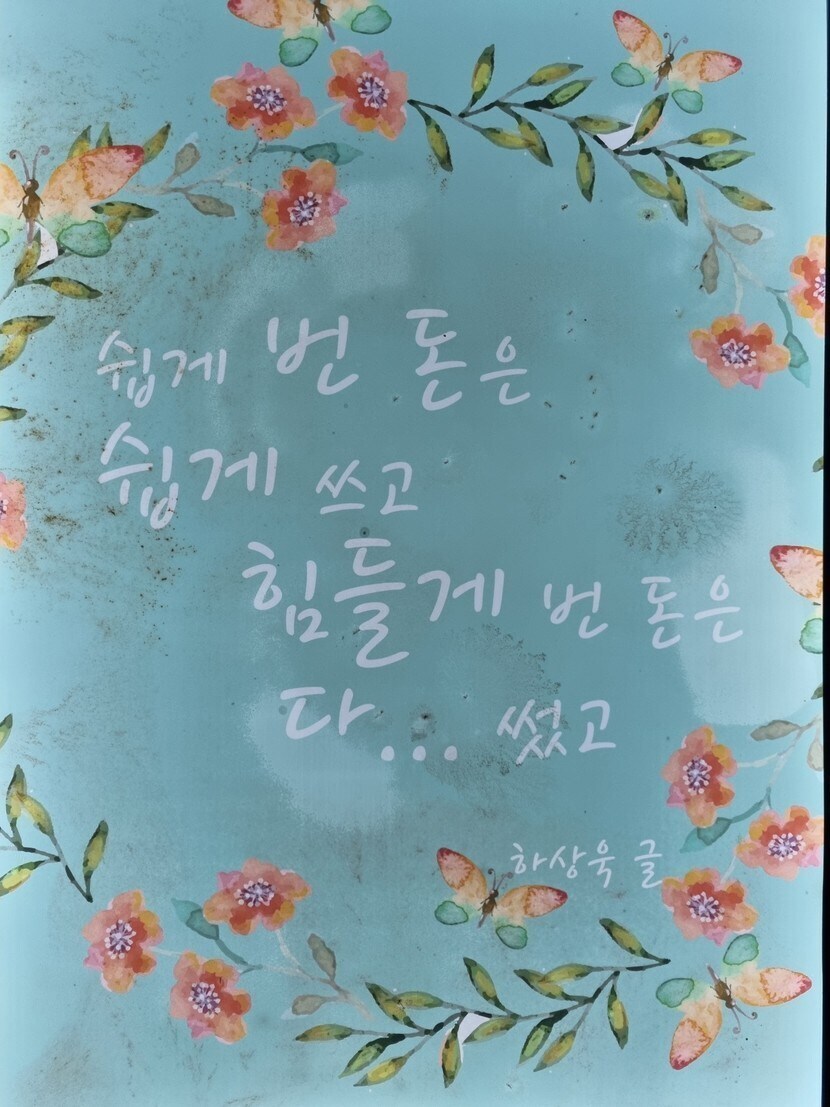 쉽게 번 돈은
쉽게 쓰고
힘들게 번 돈은
다... 썼고
하상욱 글